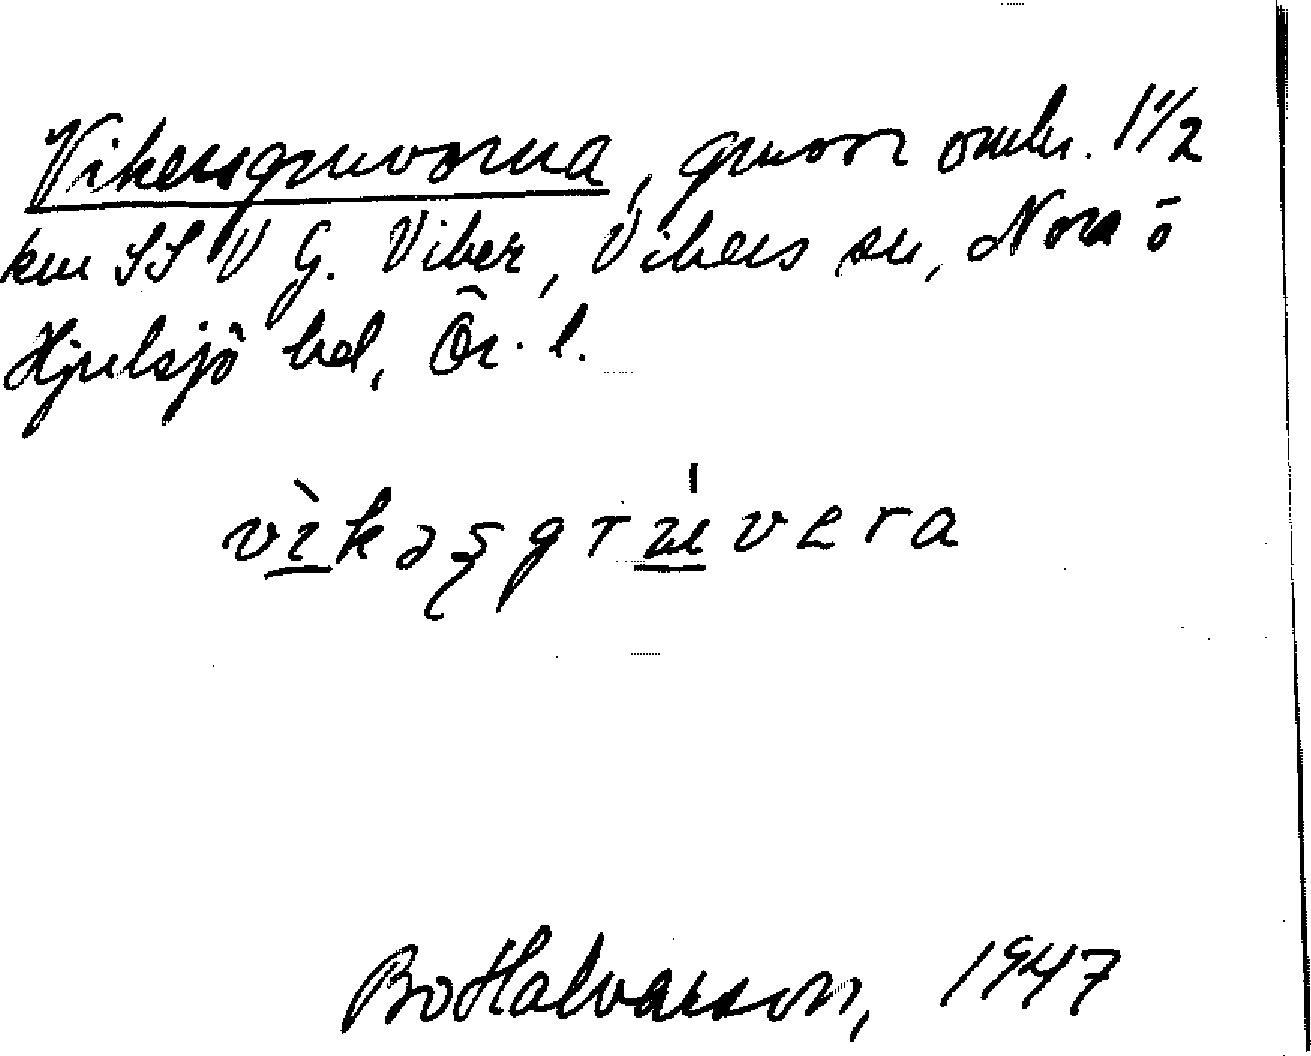 Vikersgruvorna, gruvor omkr. 1 1/2
km SSV G. Viker, Vikers sn, Nora o
Hjulsjö bd, Ör. l.
vìkəşgrúvera
Bo Halvarson, 1947